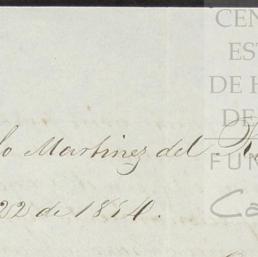 CEN
EST
DE H
DE
FUN
Ca
lo Martinez del R
22 de 1854.